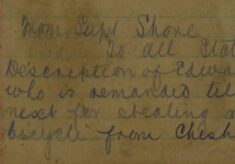 From Supt Shore
To all Stat
Description of Edwa
who is remanded til
next for stealing a
bicycle from Chesh